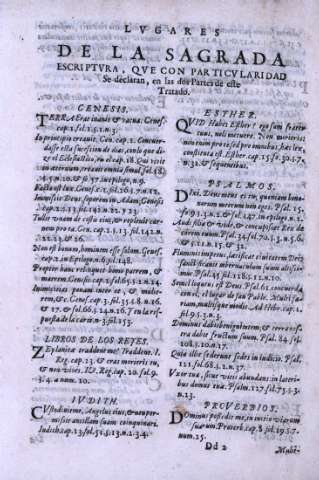 LVGARES
DE LA SAGRADA
ESCRIPTVRA, QVE CON PARTICVLARIDAD
Se declaran, en las dos Partes de este
Tratado.
GENESIS.
TERRA Erat inanis & vacua. Genes.
cap. 1. fol. 15. 1. n. 3.
In principio creauit, Gen. cap. 1. Concuer-
dasse esta
el Ecclesiastico, en el cap. 18. Qui viuit
in æternum, creauit omnia simul. fol. 48.
Facta est lux Genes. 1. fol. 26
Immisit Deus soporem in Adam, Genesis
Tulit vnam de costis eius, & repleuit
carnem pro ea. Gen. cap. 2.
22. 23. & 26.
Non est bonum, hominem esse solum. Genes.
2. en la Epistola n. 6. fol. 148.
Propter hanc relinquet homo patrem, &
matrem Genes. cap. 2. fol. 54. 5. n. 24.
Inimicitias ponam inter te, & mulie-
rem, &c. Genes. cap. 3. fol. 35. 4. 8. n. 16.
& 17. & fol. 66. 5. 4. n. 16. Y en la res-
puesta de la carta n. 3. fol. 153.
LIBROS DE LOS REYES.
ZEplanice traddent me Traddent. 1.
Reg. cap. 23. quia morieris tu,
& non viues. IV. Reg. cap. 20. fol. 9.
3. 4. a num. 20.
IVDITH.
CVstodiuit me, Angelus eius, & non per-
misit ancillam suam coinquinari.
Iudith. cap. 13. fol. 51. 5. 13. n. 2. 3. 4.
ESTHER.
QVID Habes Esther? ego sum frater
tuus, noli metuere. Non morieris
non enim pro te sed pro omnibus, hæc lex,
constituta est. Esther. cap. 15. fo. 30. 5. 7.
n. 31. & sequentibus.
PSALMOS.
DIxi, Deus meus es tu, quoniam bono-
rum meorum non eges. Psal. 15.
fo. 9 1. 3. n. 2. & fol. 147. in epilog. n. 1.
Audi filia & vide, & concupiscet Rex de-
corem tuum. Psal. 44. fol. 70. 1. 3. n. 5. 6.
& 5. 2 1. n. 15. & 25.
Fluminis impetus, lætificat ciuitatem Dei
sanctificauit tabernaculum suum altissi-
mus. Psal. 45. fol. 118. 5. 12. n. 10.
Semel loquutus est Deus Psal. 61. concuerda
con el, el lugar de san Pablo. Multifa-
riam multisque modis. Ad Hebr. cap. 1.
Dominus dabit benignitatem, & terra nostra
dabit fructum suum. Psal. 84. fol.
108. 5. 10. n. 17.
Quia illic sederunt sedes in iudicio. Psal.
121. fol. 68. 5. 2. n. 37.
Vxor tua, sicut vitis abundans in lateri-
bus domus tuæ. Psalm. 127. fol. 71. 5. 3.
n. 13.
PROVERBIOS.
DOminus possedit me, in initio viarum
suarum. Prouerb. cap. 8 fol. 39. 5. 7.
num. 25.
Dd 2
Mulie-